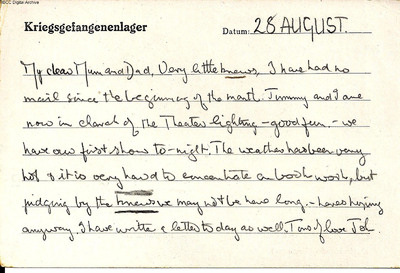 IBCC Digital Archive
Kriegsgefangenenlager
Datum: 28 AUGUST.
My dear Mum and Dad, Very little knews, I have had no
mail since the beginning of the month. Jimmy and I are
now in charch of the Theater lighting - good fun. - we
have our first show to-night. The weather has been very
hot & it is very hard to concentrate on book work, but
judging by the knews we may not be here long. - heres hoping
anyway. I have written a letter to day as well. Tons of love